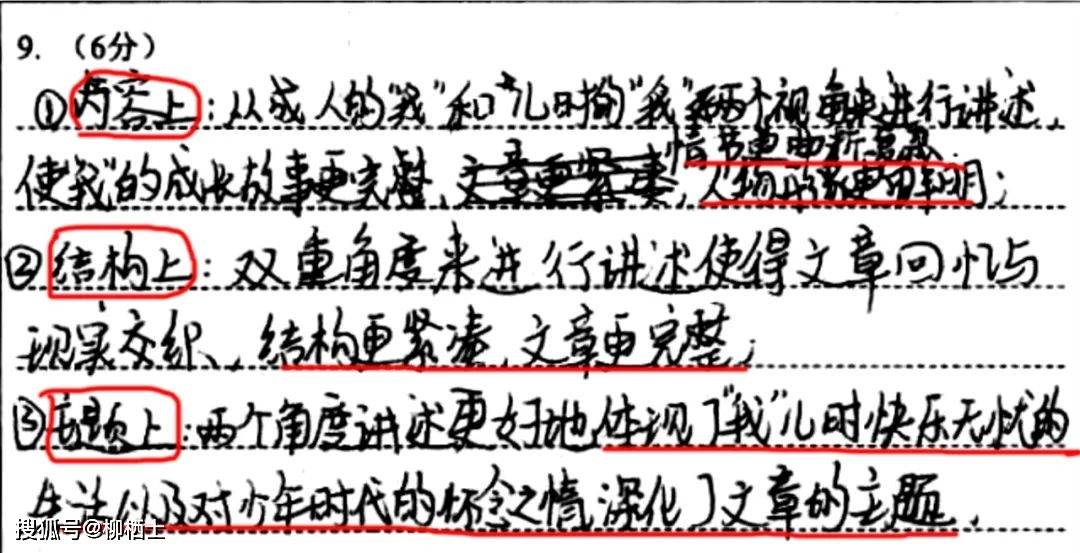 9. （6分）
①内容上：从成人的"我"和"儿时的"我"两个视角来进行讲述，
情节更曲折
使"我"的成长故事更完整，文章更紧凑，人物形象更加鲜明；
②结构上：双重角度来进行讲述使得文章回忆与
现实交织、结构更紧凑，文章更完整；
③主题上：两个角度讲述更好地体现了"我"儿时快乐无忧的
生活以及对少年时代的怀念之情，深化了文章的主题．
搜狐号@柳栖士